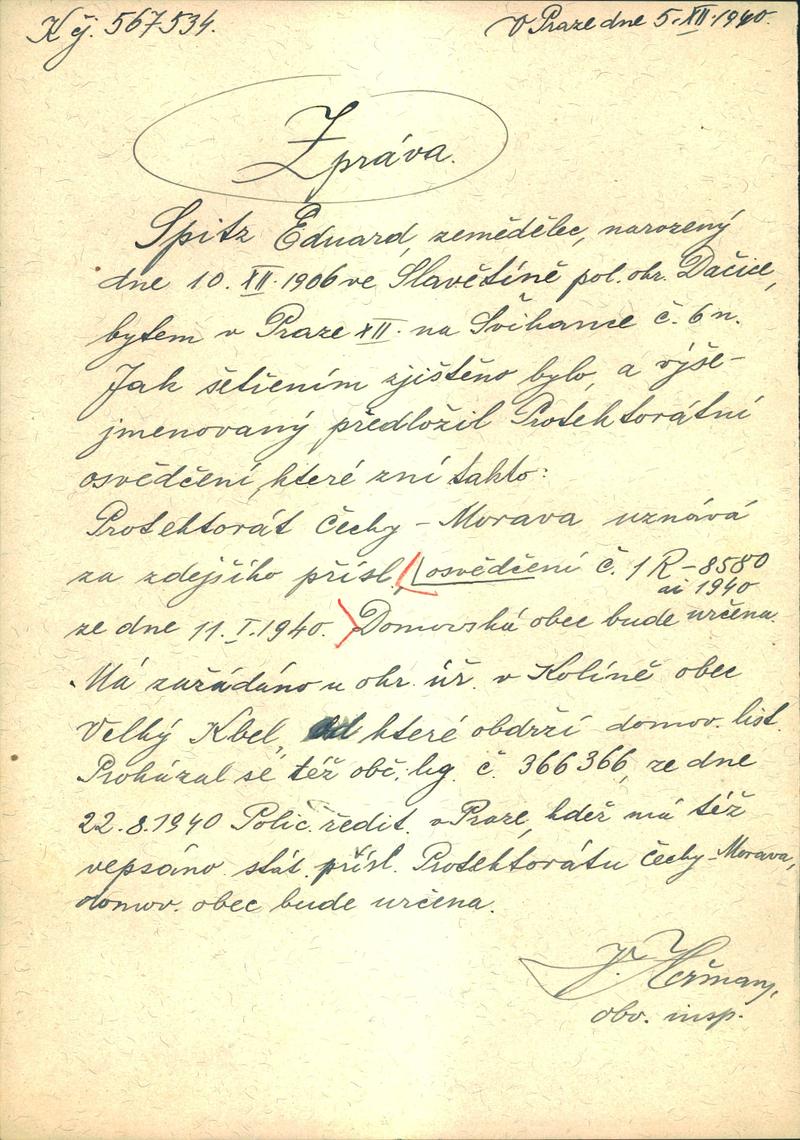 K čj. 567534.
V Praze dne 5. XII. 1940.
Zpráva.
Spitz Eduard, zemědělec, narozený
dne 10. XII. 1906 ve Slavětíně pol. okr. Dačice,
bytem v Praze XII. na Švihance č. 6 n.
Jak šetřením zjištěno bylo, a výše-
jmenovaný předložil Protektorátní
osvědčení, které zní takto:
Protektorát Čechy - Morava uznává
za zdejšího přísl. (osvědčení č. 1 R - 8580
ai 1940
ze dne 11. I. 1940. ) Domovská obec bude určena.
Má zažádáno u okr. úř. v Kolíně obec
Velký Kbel, od které obdrží domov. list.
Prokázal se též obč. leg. č. 366366, ze dne
22. 8. 1940 Polic. ředit. v Praze, kdež má též
vepsáno stát. přísl. Protektorátu Čechy - Morava,
domov. obec bude určena.
J. Heřman,
obv. insp.